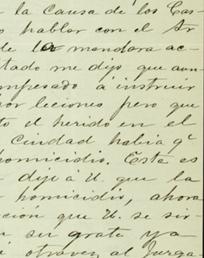 la Causa de los Cas-
hablar con el Sr
de la mandara ac-
tado me dijo que aun
mpesado à instruir
or leciones pero que
to el herido en el
ciudad habia qe
omicidio. Esta es
dije à U. que la
homicidio, ahora
cion que U. se sir-
su grata ya
otravez al Juzga-